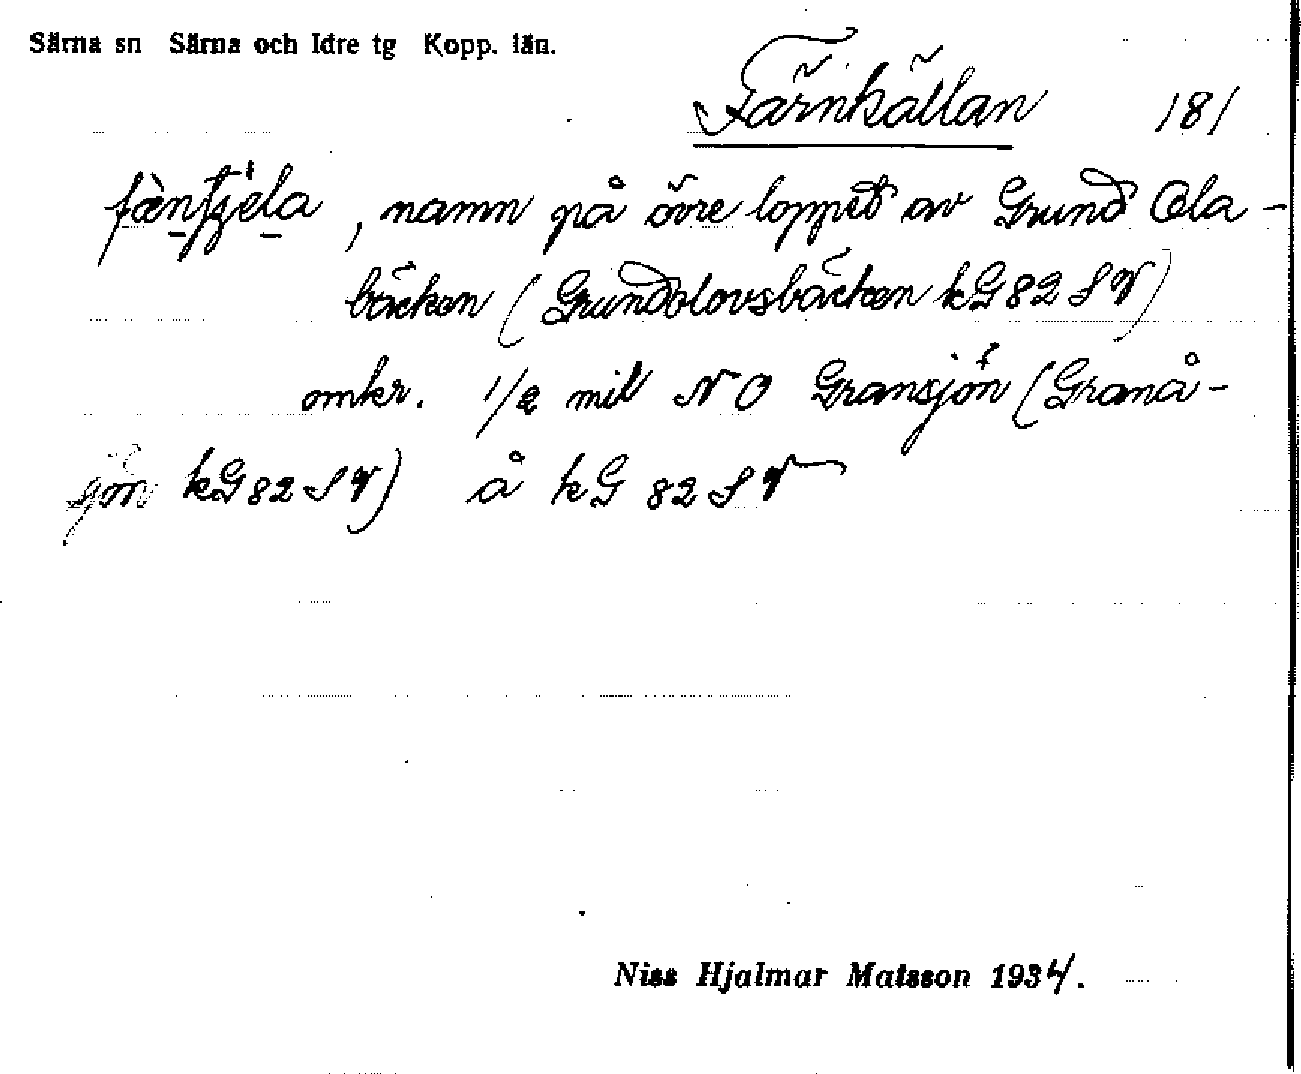 Särna sn Särna och Idre tg Kopp. län.
Färnkällan 181
, namn på övre loppet av Grund Ola-
bäcken (Grundolovsbäcken kG 82 SV)
omkr. 1/2 mil NO Gransjön (Granå-
sjön kG 82 SV) å kG 82 SV
Niss Hjalmar Matsson 1934.